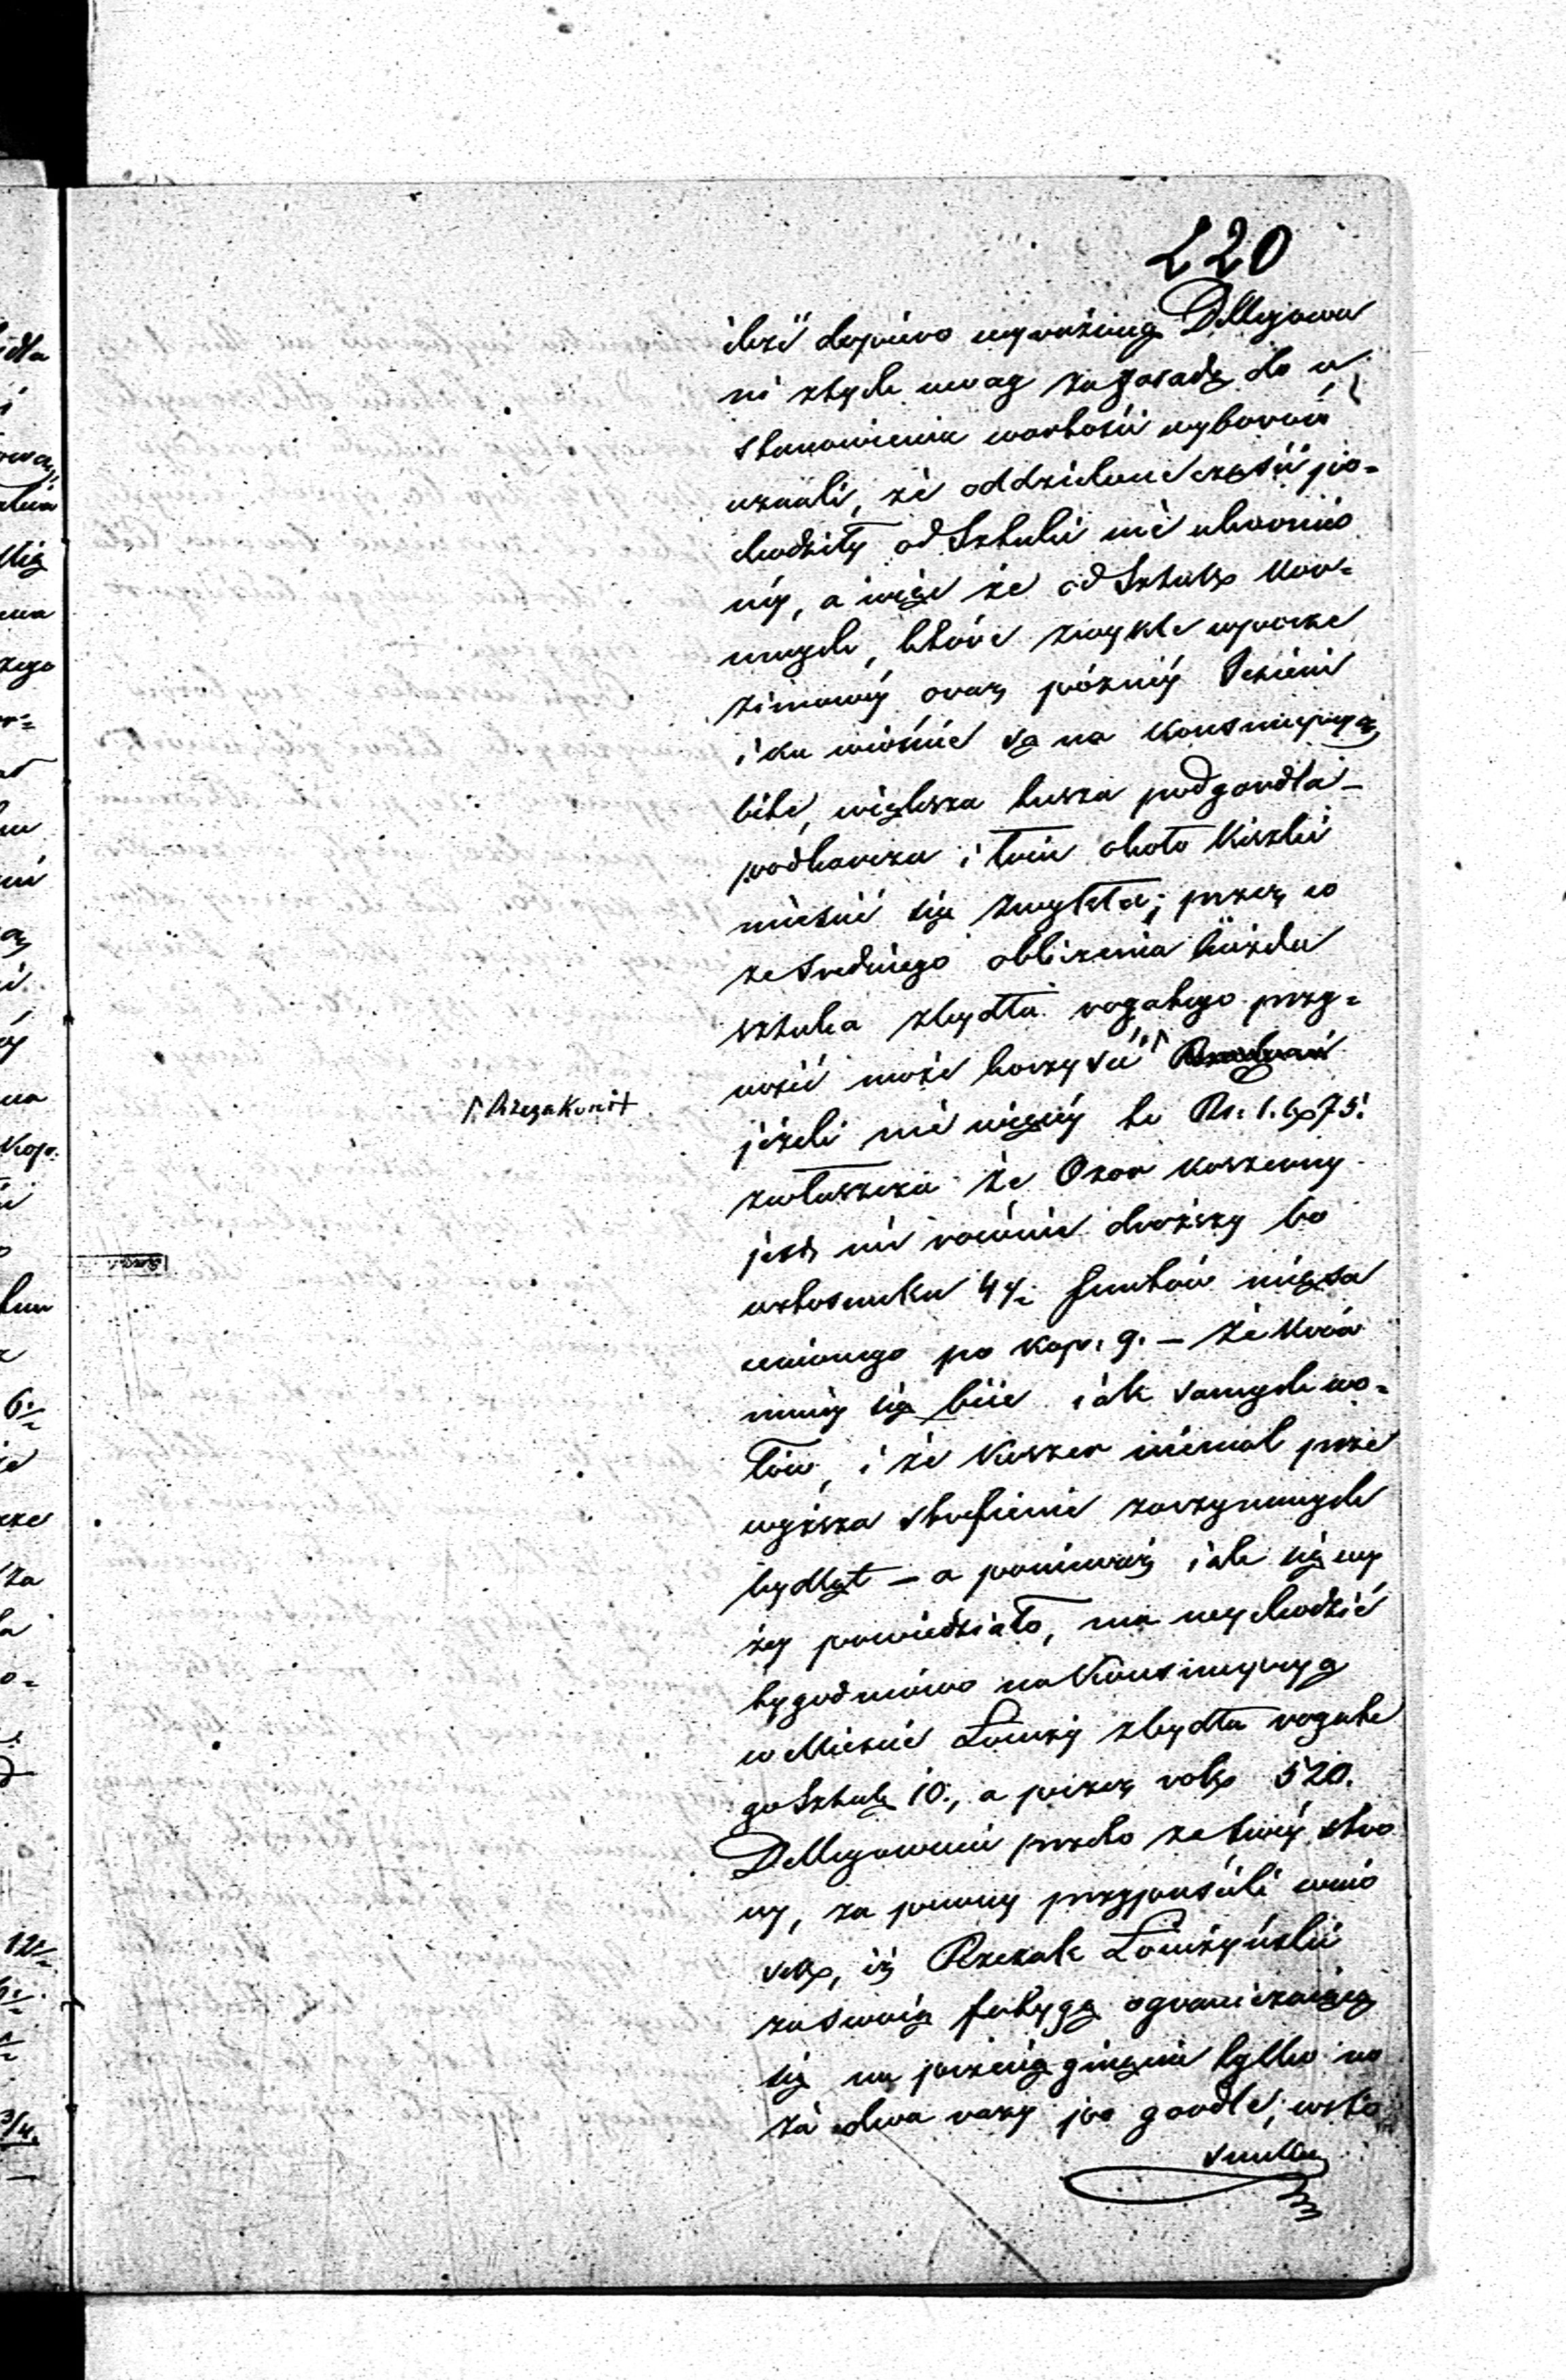 220
dopiero wyrażeniu Dellegowa
ni z tych uwag za zasadę do u
stanowienia wartości wyborów
uznali, że oddzielone części po=
chodziły od Sztuki nie ubornio
néy, a więc że od Sztuk kar=
mnych, które zwykle w porze
zimowéy oraz późnéy Jesieni
i ku wiośnie są na konsumpcyą
bite, większa tusza podgardla –
podkarcza i łoiu około Kiszki
mieścić się zwykła; przez co
ze średniego obliczenia każda
sztuka z bydła rogatego przy=
nosić może korzyści
Rzezakowi
jeżeli nie więcéy to Rs: 1. k 75.
zwłaszcza że Ozór koszerny
jest nie równie droższy bo
w stosunku 4½ funtów mięsa
cenionego po kop: 9. – że krów
mniéy się bije iak samych wo=
łów, i że Koszer niemal prze
wyższa strefienie zarzynanych
bydląt – a ponieważ iak się wy
żéy powiedziało, ma wychodzić
tygodniowo na Konsumpcyą
w Mieście Łomży z bydła rogate
go Sztuk 10., a przez rok 520.
Dellegowani przeto ze swéy stro
ny, za pewny przypuścili wnio
sek, iż Rzezak Łomżyński
za swoią fatygę ograniczaiącą
się na pociągnięciu tylko no
ża dwa razy po gardle, w sto
sunku